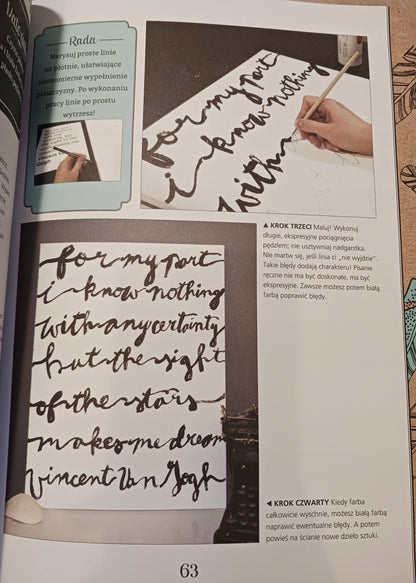 Rada
Narysuj proste linie
na płótnie, ułatwiające
równomierne wypełnienie
płaszczyzny. Po wykonaniu
pracy linie po prostu
wytrzesz!
for my part
i know nothing
with
▲ KROK TRZECI Maluj! Wykonuj
długie, ekspresyjne pociągnięcia
pędzlem; nie usztywniaj nadgarstka.
Nie martw się, jeśli linia ci „nie wyjdzie".
Takie błędy dodają charakteru! Pisanie
ręczne nie ma być doskonałe, ma być
ekspresyjne. Zawsze możesz potem białą
farbą poprawić błędy.
for my part
i know nothing
with any certainty
but the sight
of the stars
makes me dream
Vincent Van Gogh
◄ KROK CZWARTY Kiedy farba
całkowicie wyschnie, możesz białą farbą
naprawić ewentualne błędy. A potem
powieś na ścianie nowe dzieło sztuki.
63